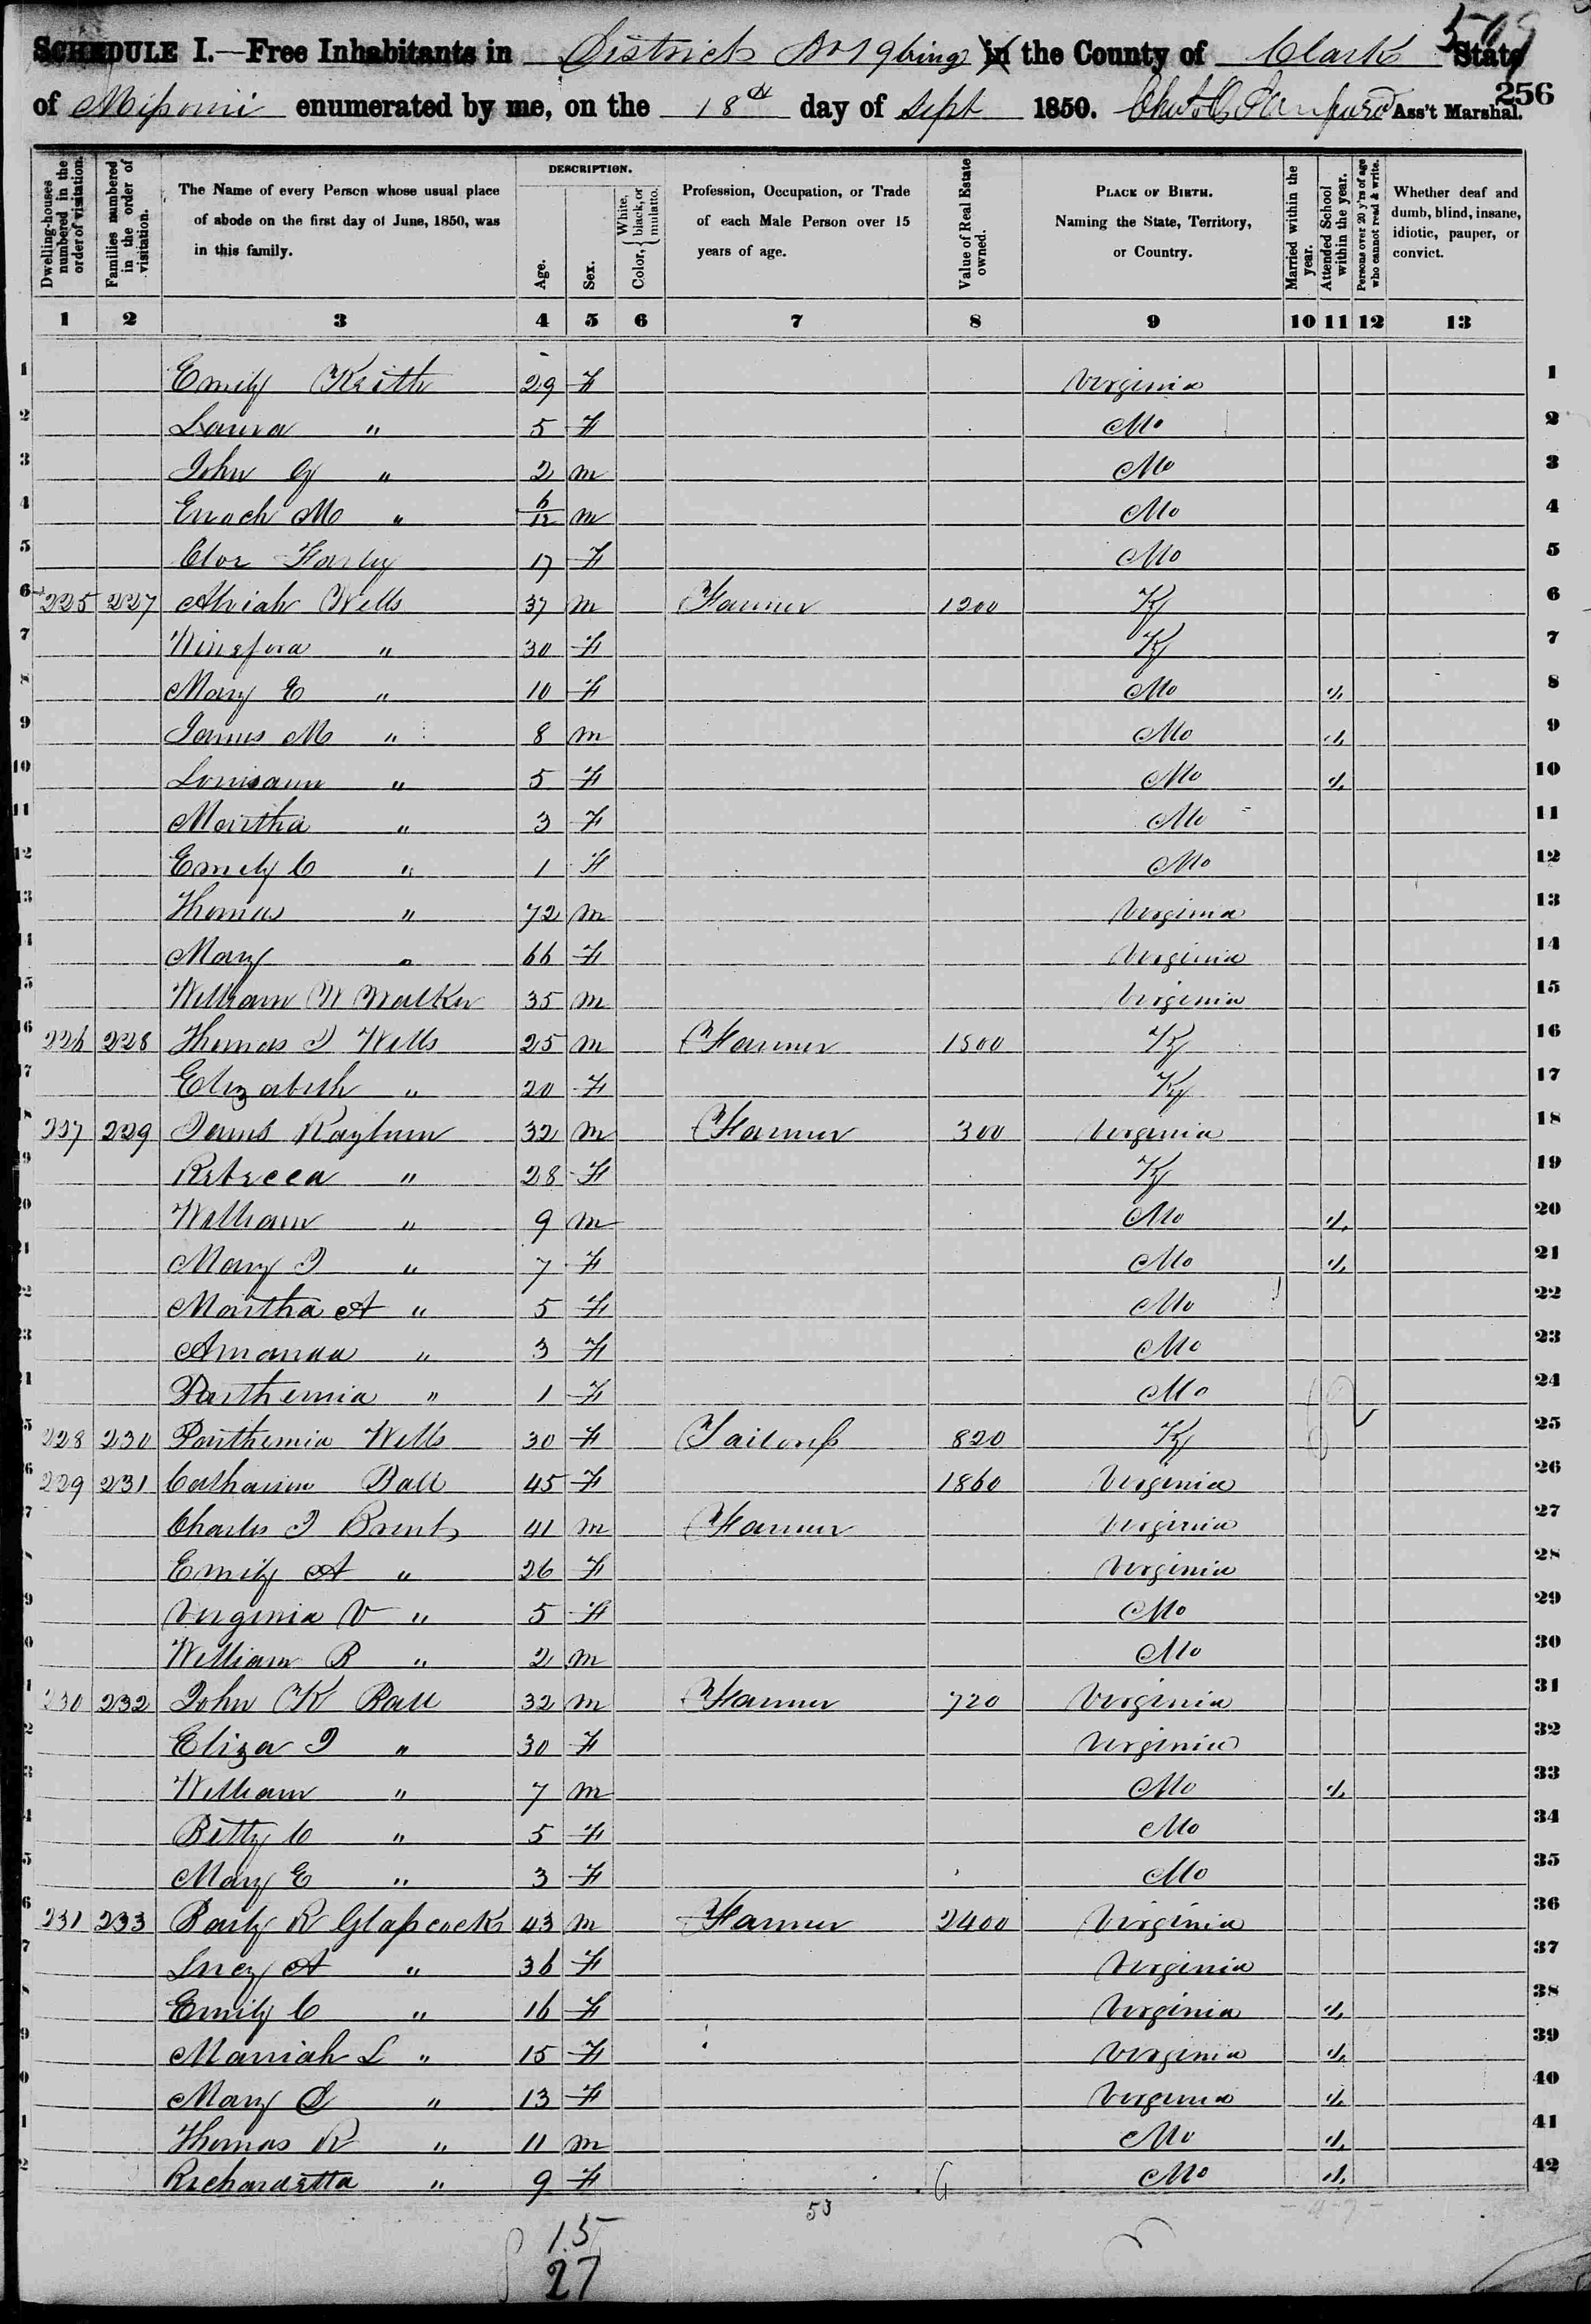 509
SCHEDULE I.—Free Inhabitants in District No 19 being in the County of Clark State
256
of Missouri enumerated by me, on the 18th day of Sept 1850. Chas C Sanford Ass't Marshal.
Dwelling-houses numbered in the order of visitation.
Families numbered in the order of visitation.
The Name of every Person whose usual place of abode on the first day of June, 1850, was in this family.
DESCRIPTION.
Age.
Sex.
Color, { White, black, or mulatto.
Profession, Occupation, or Trade of each Male Person over 15 years of age.
Value of Real Estate owned.
PLACE OF BIRTH. Naming the State, Territory, or Country.
Married within the year.
Attended School within the year.
Persons over 20 y'rs of age who cannot read & write.
Whether deaf and dumb, blind, insane, idiotic, pauper, or convict.
1 2 3 4 5 6 7 8 9 10 11 12 13
1 Emily Keith 29 F Virginia 1
2 Laura " 5 F Mo 2
3 John G " 2 m Mo 3
4 Enoch M " 6/12 m Mo 4
5 Cloe Farley 17 F Mo 5
6 225 227 Alviah Wells 37 m Farmer 1200 Ky 6
7 Winefora " 30 F Ky 7
8 Mary E " 10 F Mo 1, 8
9 James M " 8 m Mo 1, 9
10 Louisann " 5 F Mo 1, 10
11 Martha " 3 F Mo 11
12 Emily C " 1 F Mo 12
13 Thomas " 72 m Virginia 13
14 Mary " 66 F Virginia 14
15 William W Walker 35 m Virginia 15
16 226 228 Thomas J Wells 25 m Farmer 1500 Ky 16
17 Elizabeth " 20 F Ky 17
18 227 229 James Rayburn 32 m Farmer 300 Virginia 18
19 Rebecca " 28 F Ky 19
20 William " 9 m Mo 1, 20
21 Mary J " 7 F Mo 1, 21
22 Martha A " 5 F Mo 22
23 Amanda " 3 F Mo 23
24 Parthemia " 1 F Mo 24
25 228 230 Parthemia Wells 30 F Tailoress 820 Ky 25
26 229 231 Catharine Ball 45 F 1860 Virginia 26
27 Charles J Brent 41 m Farmer Virginia 27
28 Emily A " 26 F Virginia 28
29 Virginia V " 5 F Mo 29
30 William B " 2 m Mo 30
31 230 232 John K Ball 32 m Farmer 720 Virginia 31
32 Eliza J " 30 F Virginia 32
33 William " 7 m Mo 1, 33
34 Betty C " 5 F Mo 34
35 Mary E " 3 F Mo 35
36 231 233 Glasscock 43 m Farmer 2400 Virginia 36
37 Lucy A " 36 F Virginia 37
38 Emily C " 16 F Virginia 1, 38
39 Marriah L " 15 F Virginia 1, 39
40 Mary " 13 F Virginia 1, 40
41 Thomas R " 11 m Mo 1, 41
42 Richardetta " 9 F Mo 1, 42
53
15
27